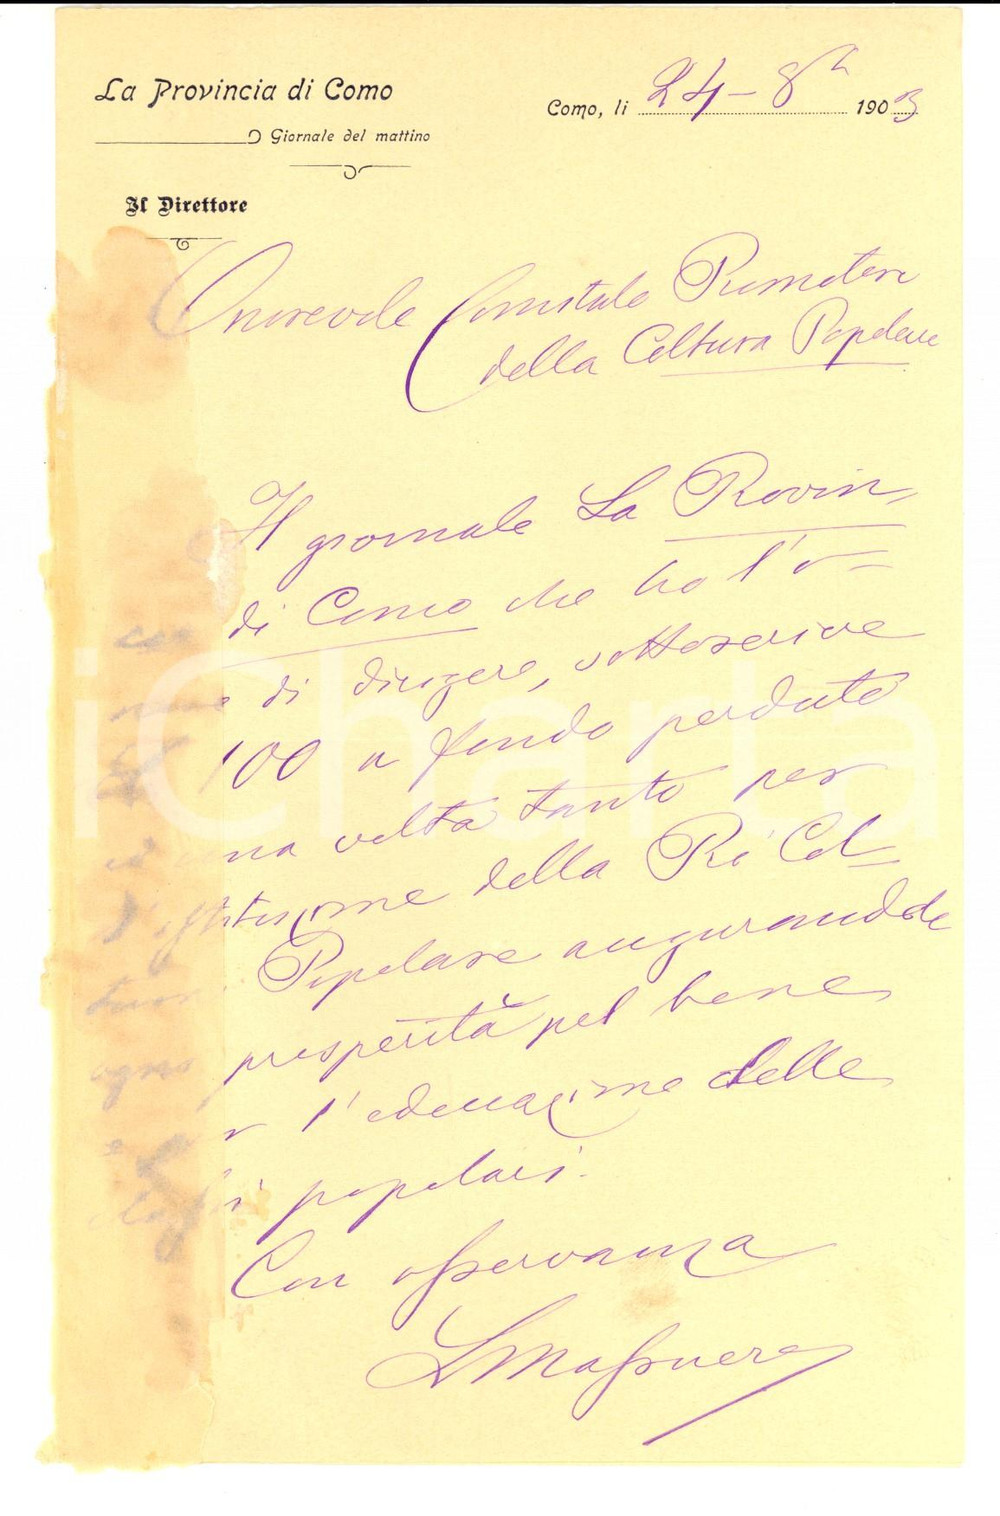 La Provincia di Como
Giornale del mattino
Il Direttore
Como, li 24-8bre 1903
Onorevole Comitato Promotore
della Coltura Popolare
Il giornale La Provin
di Como che ha l'o=
e di dirigere, sottoscrive
100 a fondo perduto
una volta tanto per
l'istituzione della Pro' Col=
Popolare augurando
prosperità pel bene
ogno
l'educazione delle
classi popolari.
Con osservanza
iCharta